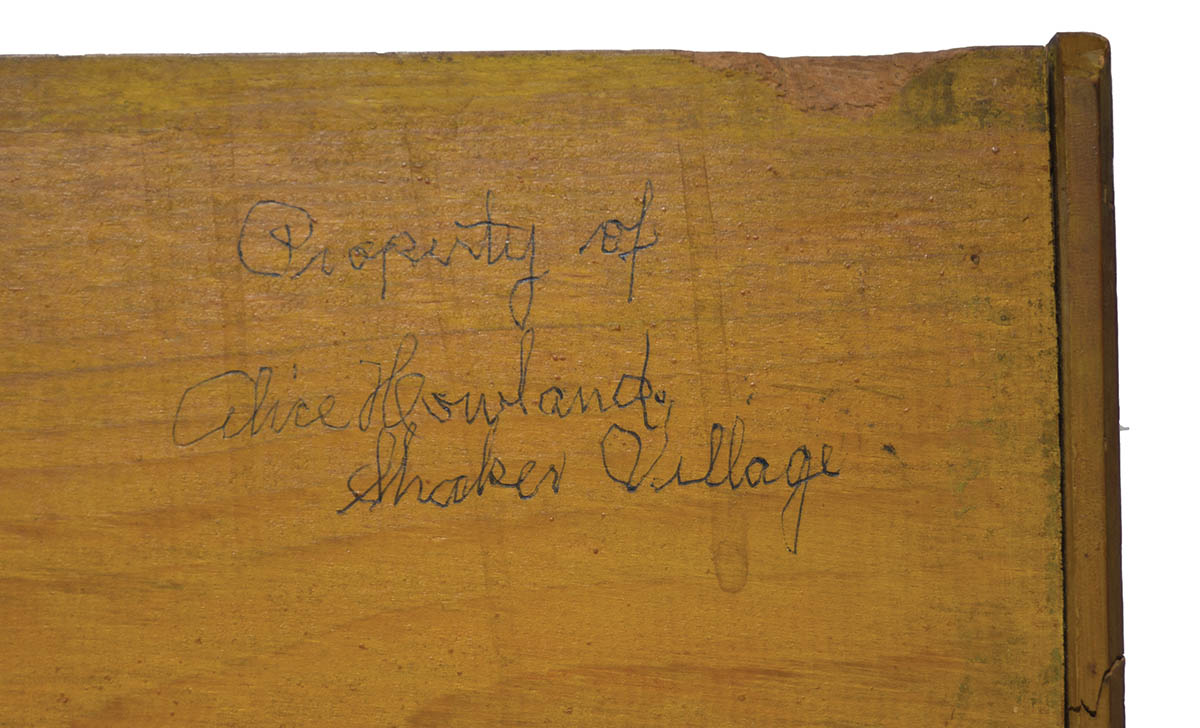 Property of
Alice Howland,
Shaker Village.